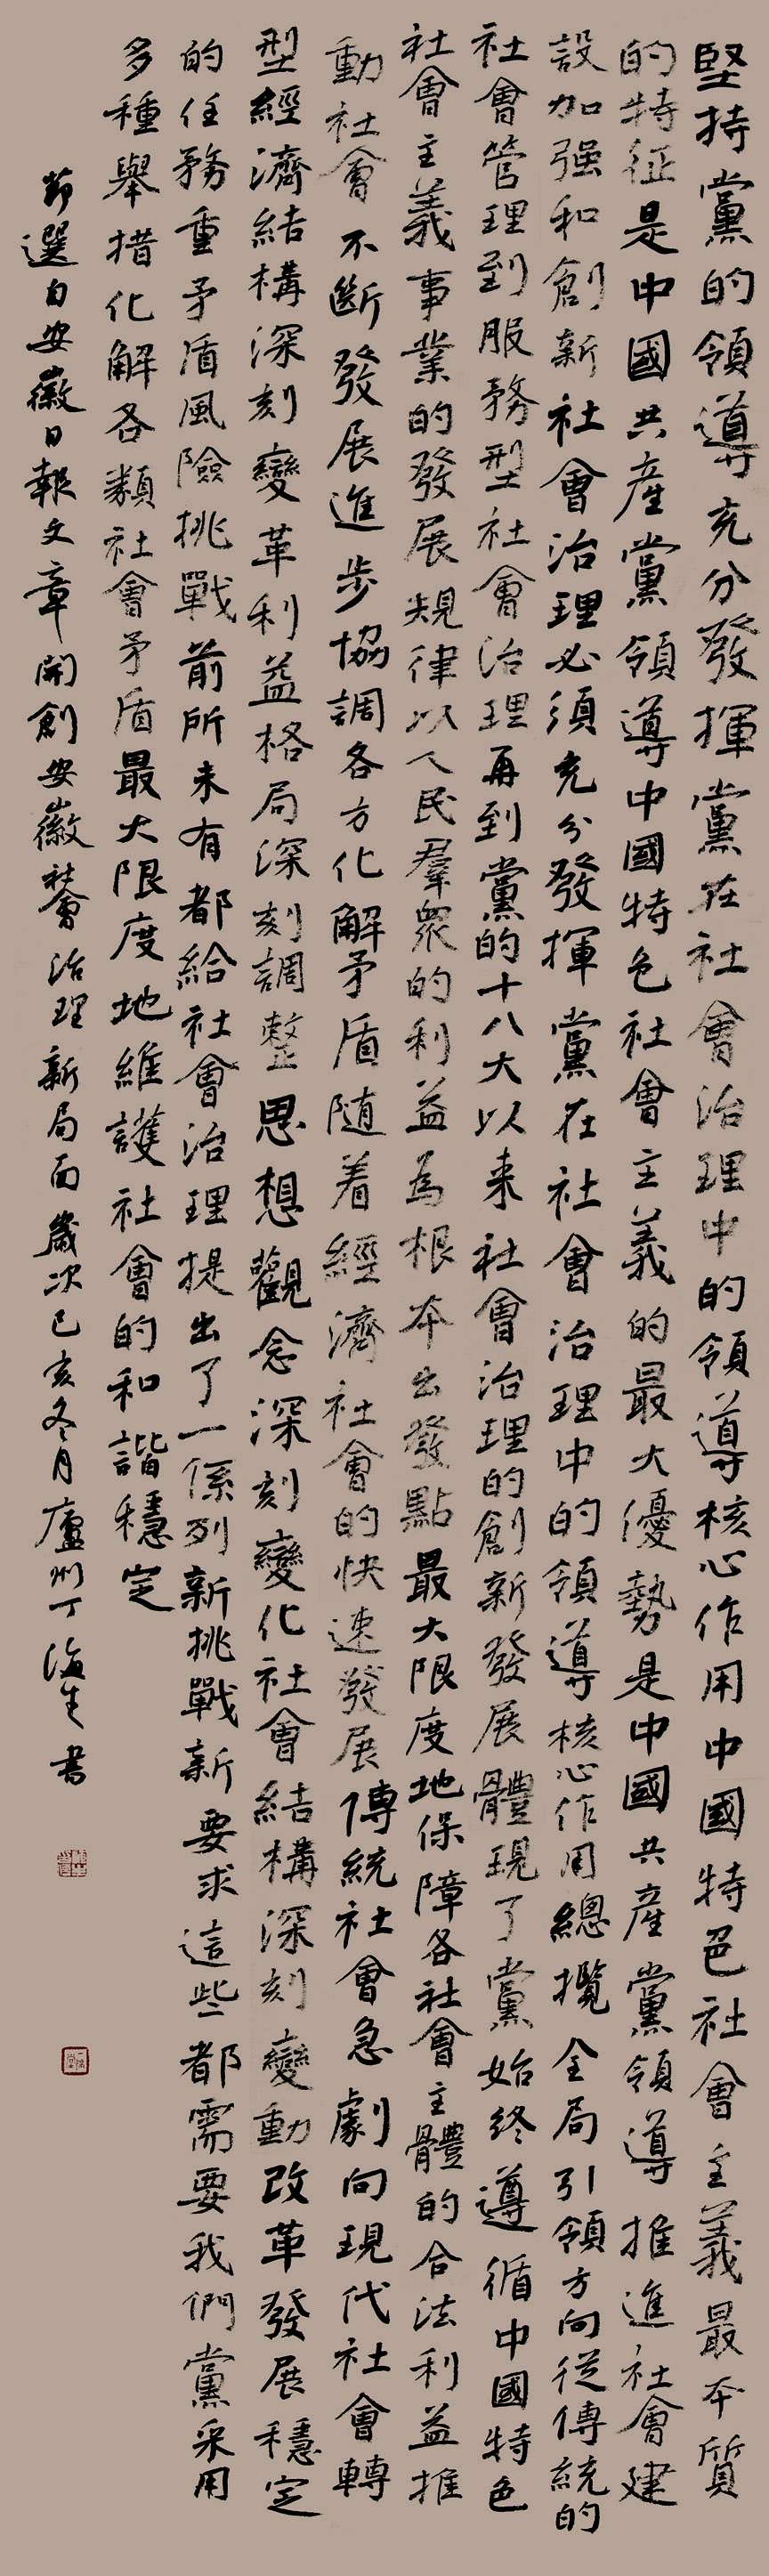 堅持黨的領導充分發揮黨在社會治理中的領導核心作用中國特色社會主義最本質
的特征是中國共産黨領導中國特色社會主義的最大優勢是中國共産黨領導推進社會建
設加强和創新社會治理必須充分發揮黨在社會治理中的領導核心作用總攬全局引領方向從傳統的
社會管理到服務型社會治理再到黨的十八大以来社會治理的創新發展體現了黨始終遵循中國特色
社會主義事業的發展規律以人民羣衆的利益為根本出發點最大限度地保障各社會主體的合法利益推
動社會不斷發展進步協調各方化解矛盾随着經濟社會的快速發展傳統社會急劇向現代社會轉
型經濟結構深刻變革利益格局深刻調整思想觀念深刻變化社會結構深刻變動改革發展穩定
的任務重矛盾風險挑戰前所未有都給社會治理提出了一係列新挑戰新要求這些都需要我們黨采用
多種舉措化解各類社會矛盾最大限度地維護社會的和諧穩定
節選自安徽日報文章開創安徽社會治理新局面歲次己亥冬月廬州丁海生書